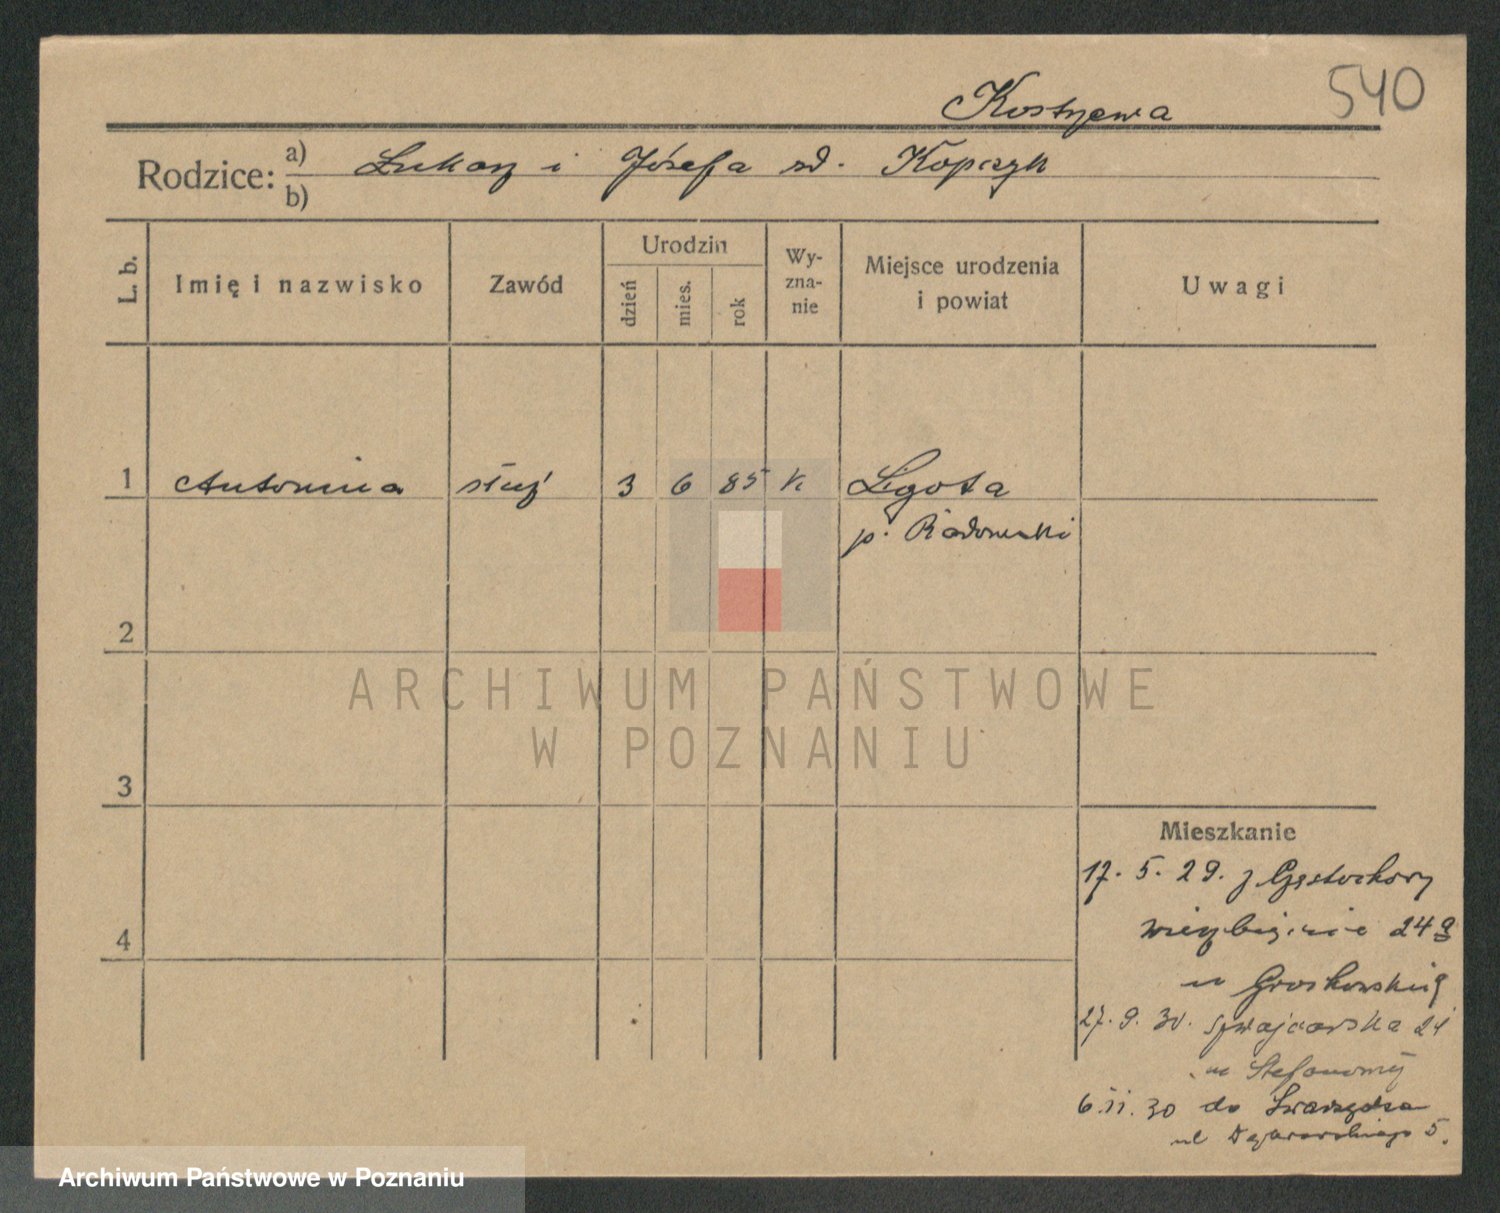 540
Kostrzewa
Rodzice: a) Łukasz i Józefa zd. Kopczyk
b)
L. b. Imię i nazwisko Zawód Urodzin dzień mies. rok Wy-zna-nie Miejsce urodzenia i powiat Uwagi
1 Antonina służ 3 6 85 k Ligota
p. Radomski
2
ARCHIWUM PAŃSTWOWE
W POZNANIU
3
Mieszkanie
17. 5. 29. z Częstochowy
4
24a
u
27. 9. 30. Szwajcarska 24
u
6. 11. 30 do Swarzędza
ul 5.
Archiwum Państwowe w Poznaniu